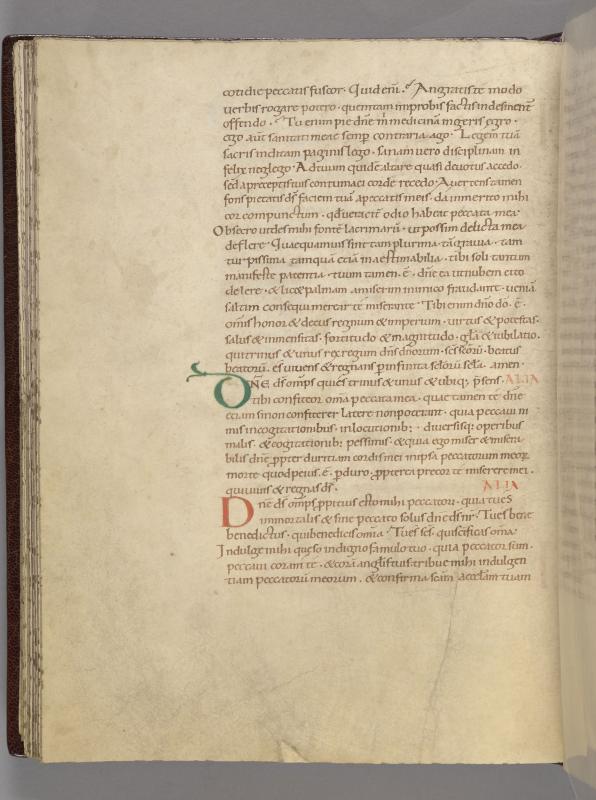 cotidie peccatis fuscor. Quid enī. An gratis te modo
uerbis rogare potero. quem tam improbis factis indesinent̄
offendo. Tu enim pie dn̄e m̄ medicinā ingeris egro.
ego aut̄ sanitati meae semp̄ contraria ago. Legem tuā
sacris inditam paginis lego. sanam uero disciplinam in
felix neglego. Ad tuum quidē altare quasi deuotus accedo.
sed a preceptis tuis contumaci corde recedo. Auertens tamen
fons pietatis ds̄ faciem tuā a peccatis meis. da inmerito mihi
cor compunctum. qđ ueraciť odio habeat peccata mea.
Obsecro ut des mihi fontē lacrimarū. ut possim delicta mea
deflere. Quae quamuis sint tam plurima. tā grauia. tam
turpissima tamquā etiā inaestimabilia. tibi soli tantum
manifeste patentia. tuum tamen. ē. dn̄e ea ut nubem cito
delere. & licet palmam a miserim inimico fraudante. ueniā
saltim consequi merear te miserante. Tibi enim dn̄o dō. ē.
om̄is honor & decus regnum & imperium. uirtus & potestas.
salus & inmensitas. fortitudo & magnitudo. gl̄a & iubilatio.
qui trinus & unus rex regum dn̄s dn̄orum. sc̄s sc̄orū. beatus
beatorū. es uiuens & regnans p̄ infinita sc̄lorū sc̄la. amen.
DN̄E ds̄ om̄ps qui es trinus & unus & ubiq; p̄sens. ALIA
tibi confiteor om̄a peccata mea. quae tamen te dn̄e
etiam si non confiterer latere non poterant. quia peccaui ni
mis in cogitationibus. in locutionib;. diuersisq; operibus
malis. & cogitationib; pessimis. & quia ego miser & misera
bilis dn̄e ꝓpter duritiam cordis mei in ipsa peccatorum meoꝝ
morte quod peius. ē. ꝑduro. ꝓpterea precor te miserere mei.
qui uiuis & regnas ds̄. ALIA
Dn̄e ds̄ om̄ps ꝓpitius esto mihi peccatori. quia tu es
immortalis & sine peccato solus dn̄e ds̄ nr̄. Tu es bene
benedictus. qui benedicis om̄ia. Tu es sc̄s. qui sc̄ificas om̄a.
Indulge mihi queso indigno famulo tuo. quia peccator sum.
peccaui coram te. & corā angl̄is tuis. tribue mihi indulgen
tiam peccatorū meorum. & confirma sc̄am aeccl̄am tuam